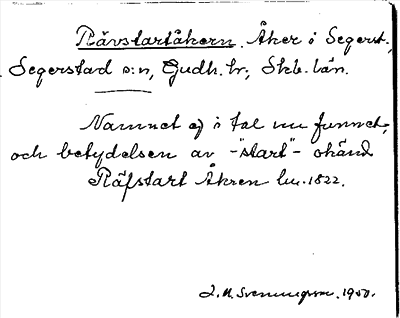 Rävstartåkern. Åker i Segerst.,
Segerstad s:n, Gudh. hr; Skb. län.
Namnet ej i tal nu funnet,
och betydelsen av -"start"- okänd
Räfstart Åkren lm. 1822.
J. A. Svenungsson. 1950.